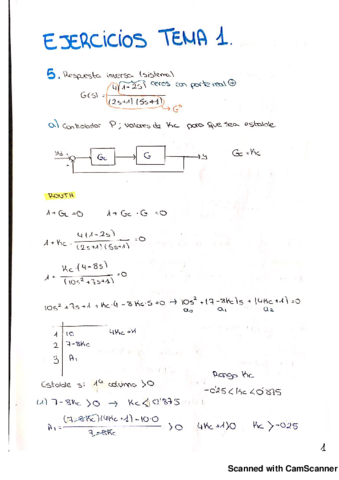 EJERCICIOS TEMA 1.
5. Respuesta inversa (sistema)
G(s) = 4(1-2s) / (2s+1)(5s+1) ceros con parte real ⊕
→ G*
a) Controlador P; valores de Kc para que sea estable
+ - Gc G y Gc = Kc
ROUTH
1+GL=0 1+Gc·G=0
1+Kc· 4(1-2s) / (2s+1)(5s+1) = 0
1+ Kc(4-8s) / (10s²+7s+1) = 0
10s²+7s+1+Kc·4-8Kc·s=0 → 10s²+(7-8Kc)s+(4Kc+1)=0
a₀ a₁ a₂
1 10 4Kc+1
2 7-8Kc
3 A₁
Estable si 1ª columna >0
Rango Kc
-0'25<Kc<0'875
(1) 7-8Kc >0 → Kc < 0'875
A₁= (7-8Kc)(4Kc+1)-10·0 / 7-8Kc >0 4Kc+1>0 Kc>-0.25
1
Scanned with CamScanner